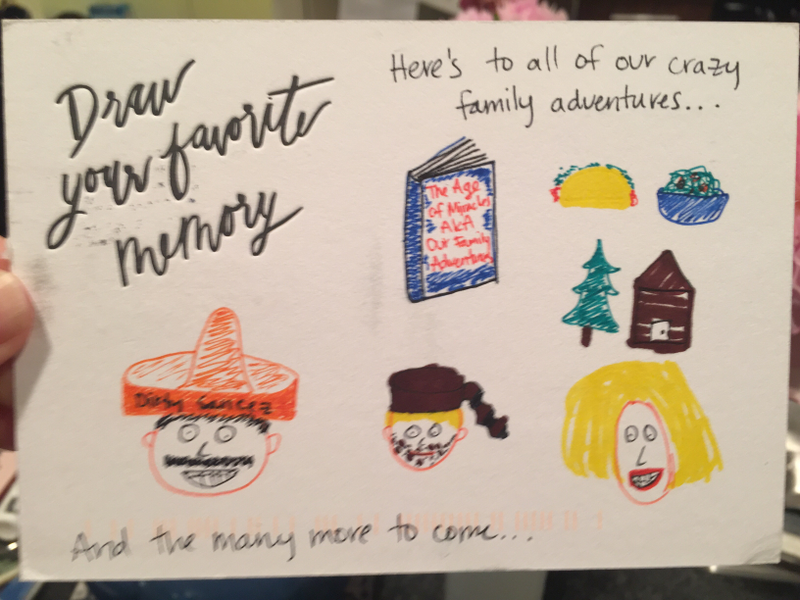 Draw
your favorite
memory
Here's to all of our crazy
family adventures...
The Age
of Miracles
AKA
Our Family
Adventures
Dirty Sancez
And the many more to come...